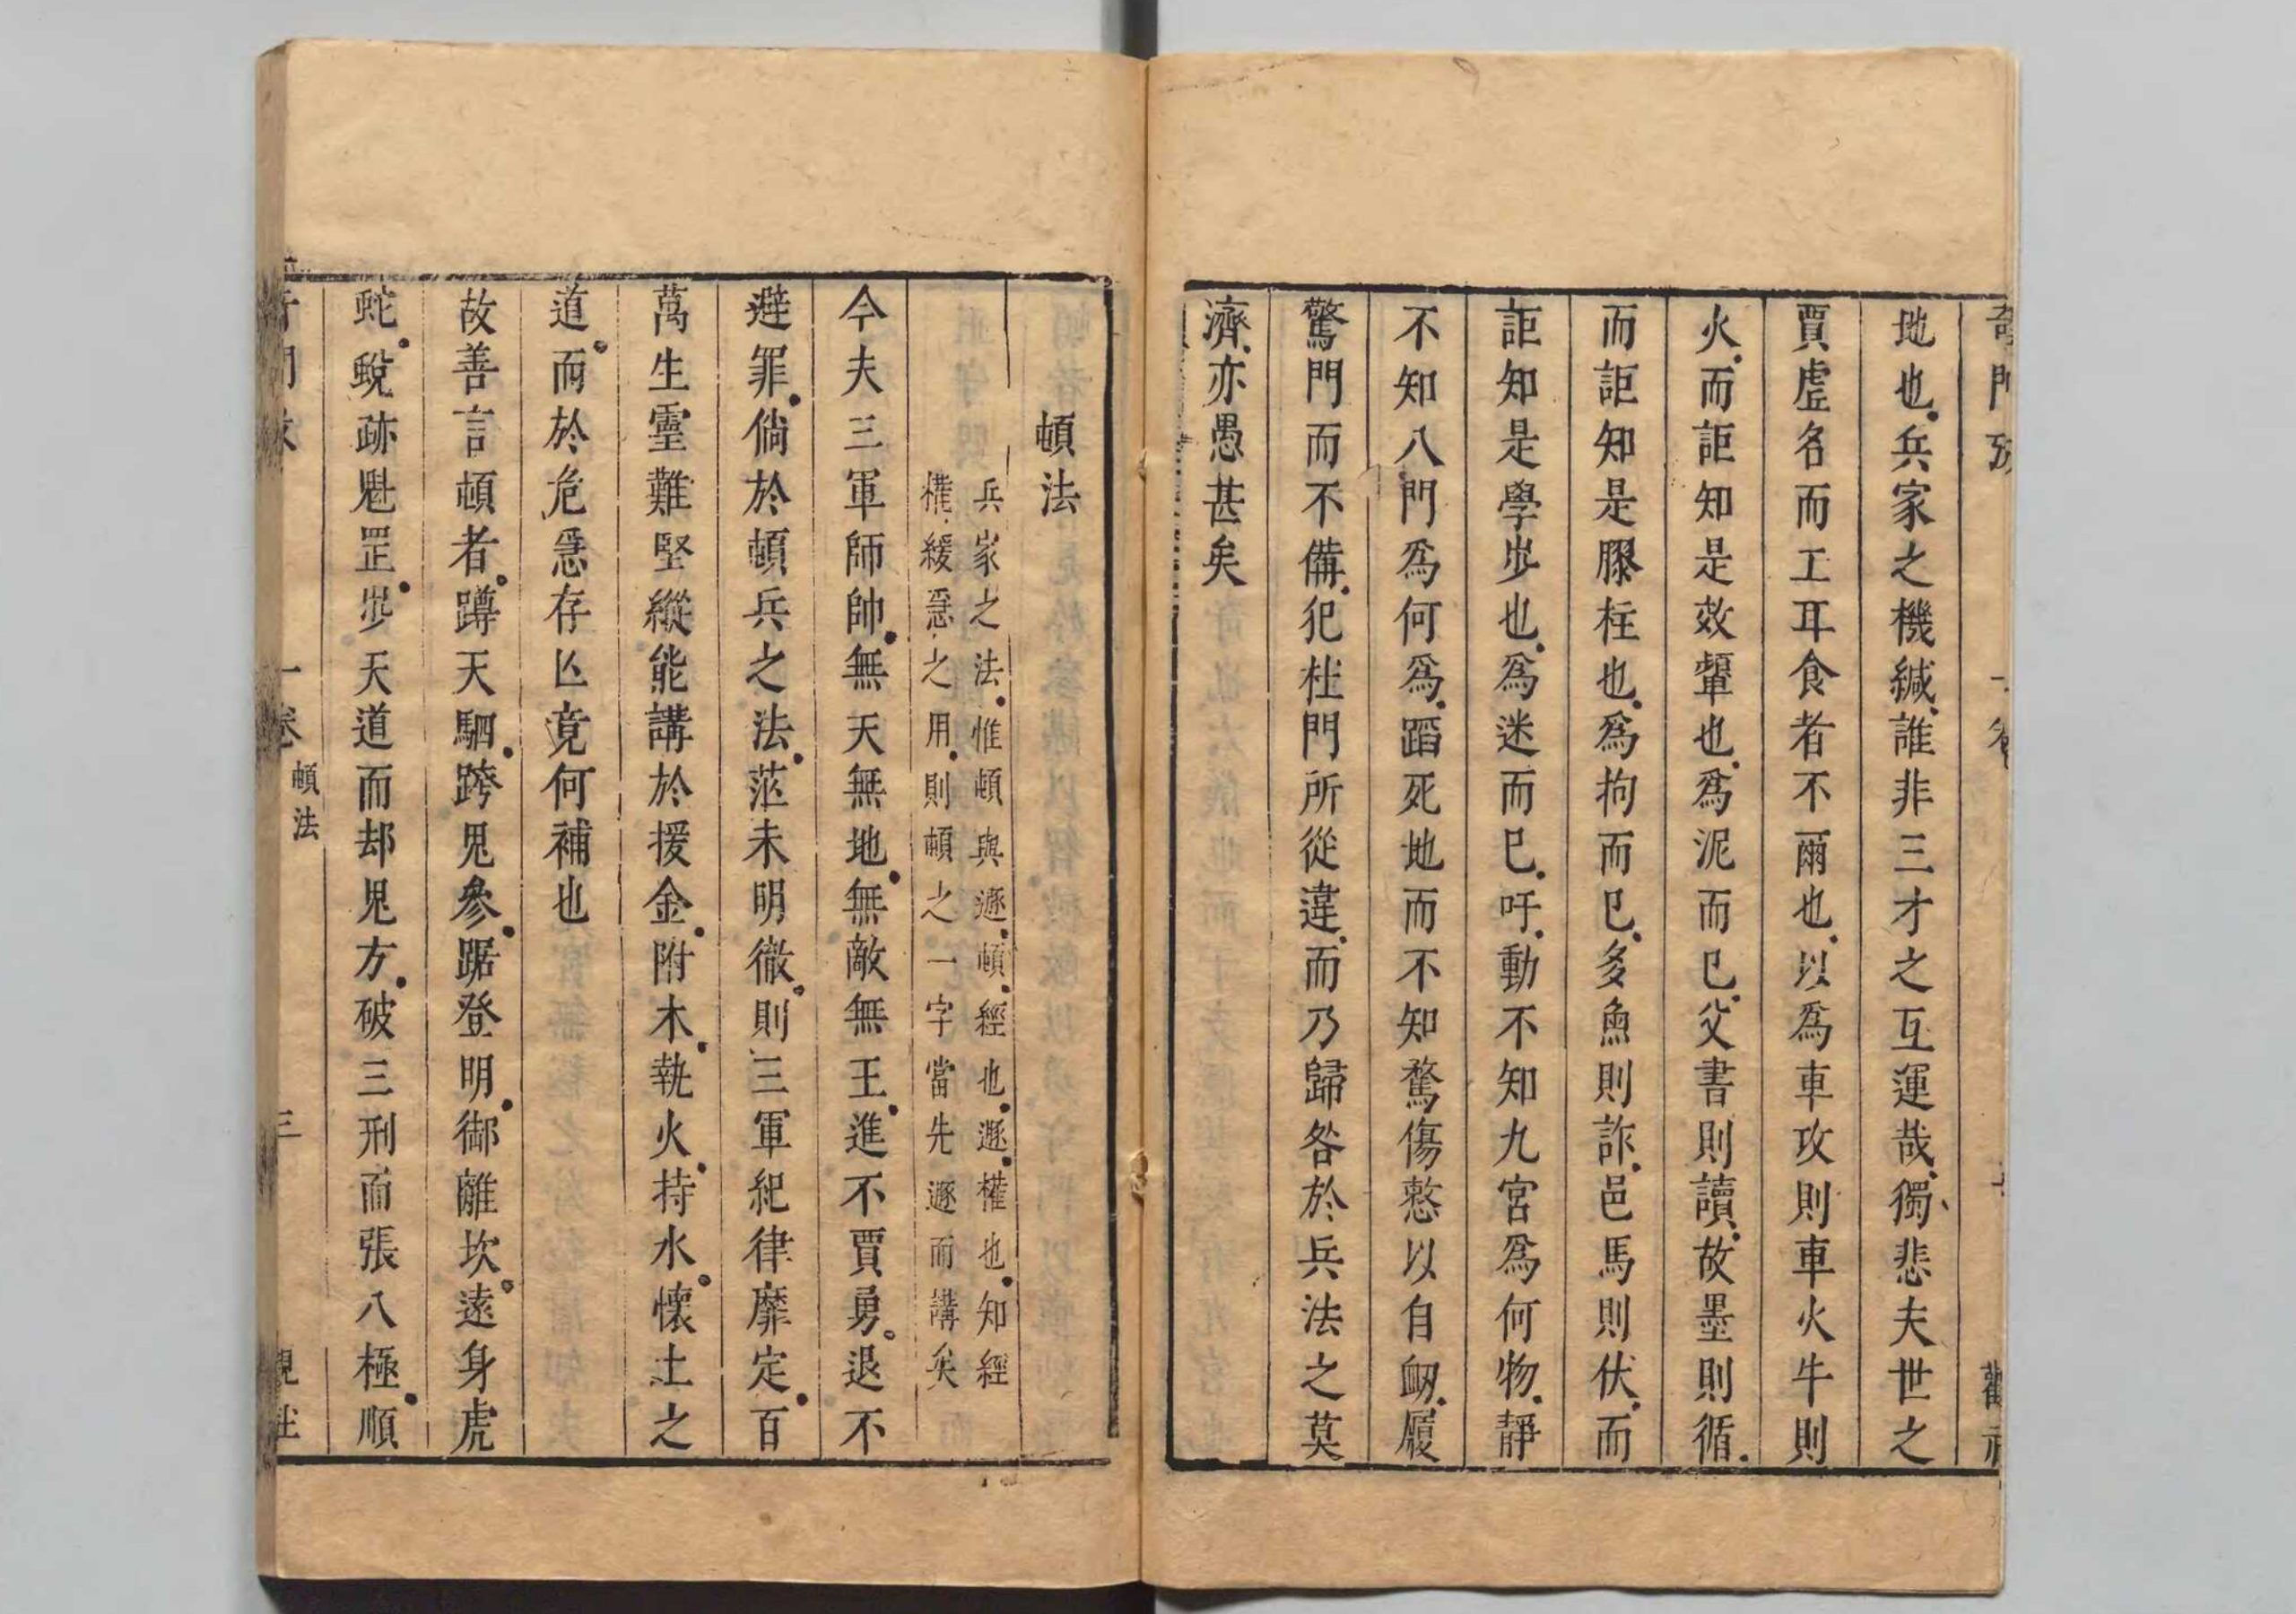 地也兵家之機緘誰非三才之互運哉獨悲夫世之
賈虛名而工耳食者不爾也以爲車攻則車火牛則
火而詎知是效顰也爲泥而已父書則讀故墨則循
而詎知是膠柱也爲拘而已多魚則詐邑馬則伏而
詎知是學步也爲迷而已吁動不知九宮爲何物靜
不知八門爲何爲蹈死地而不知驁傷憗以自衂履
驚門而不備犯杜門所從違而乃歸咎於兵法之莫
濟亦愚甚矣
頓法
兵家之法惟頓與遯頓經也遯權也知經
權緩急之用則頓之一字當先遯而講矣
今夫三軍師帥無天無地無敵無王進不賈勇退不
避罪倘於頓兵之法茫未明徹則三軍紀律靡定百
萬生靈難堅縱能講於援金附木執火持水懷土之
道而於危急存亾竟何補也
故善言頓者蹲天駟跨見參踞登明御離坎遠身虎
蛇蛻跡魁罡步天道而却見方破三刑而張八極順
一卷 頓法 三